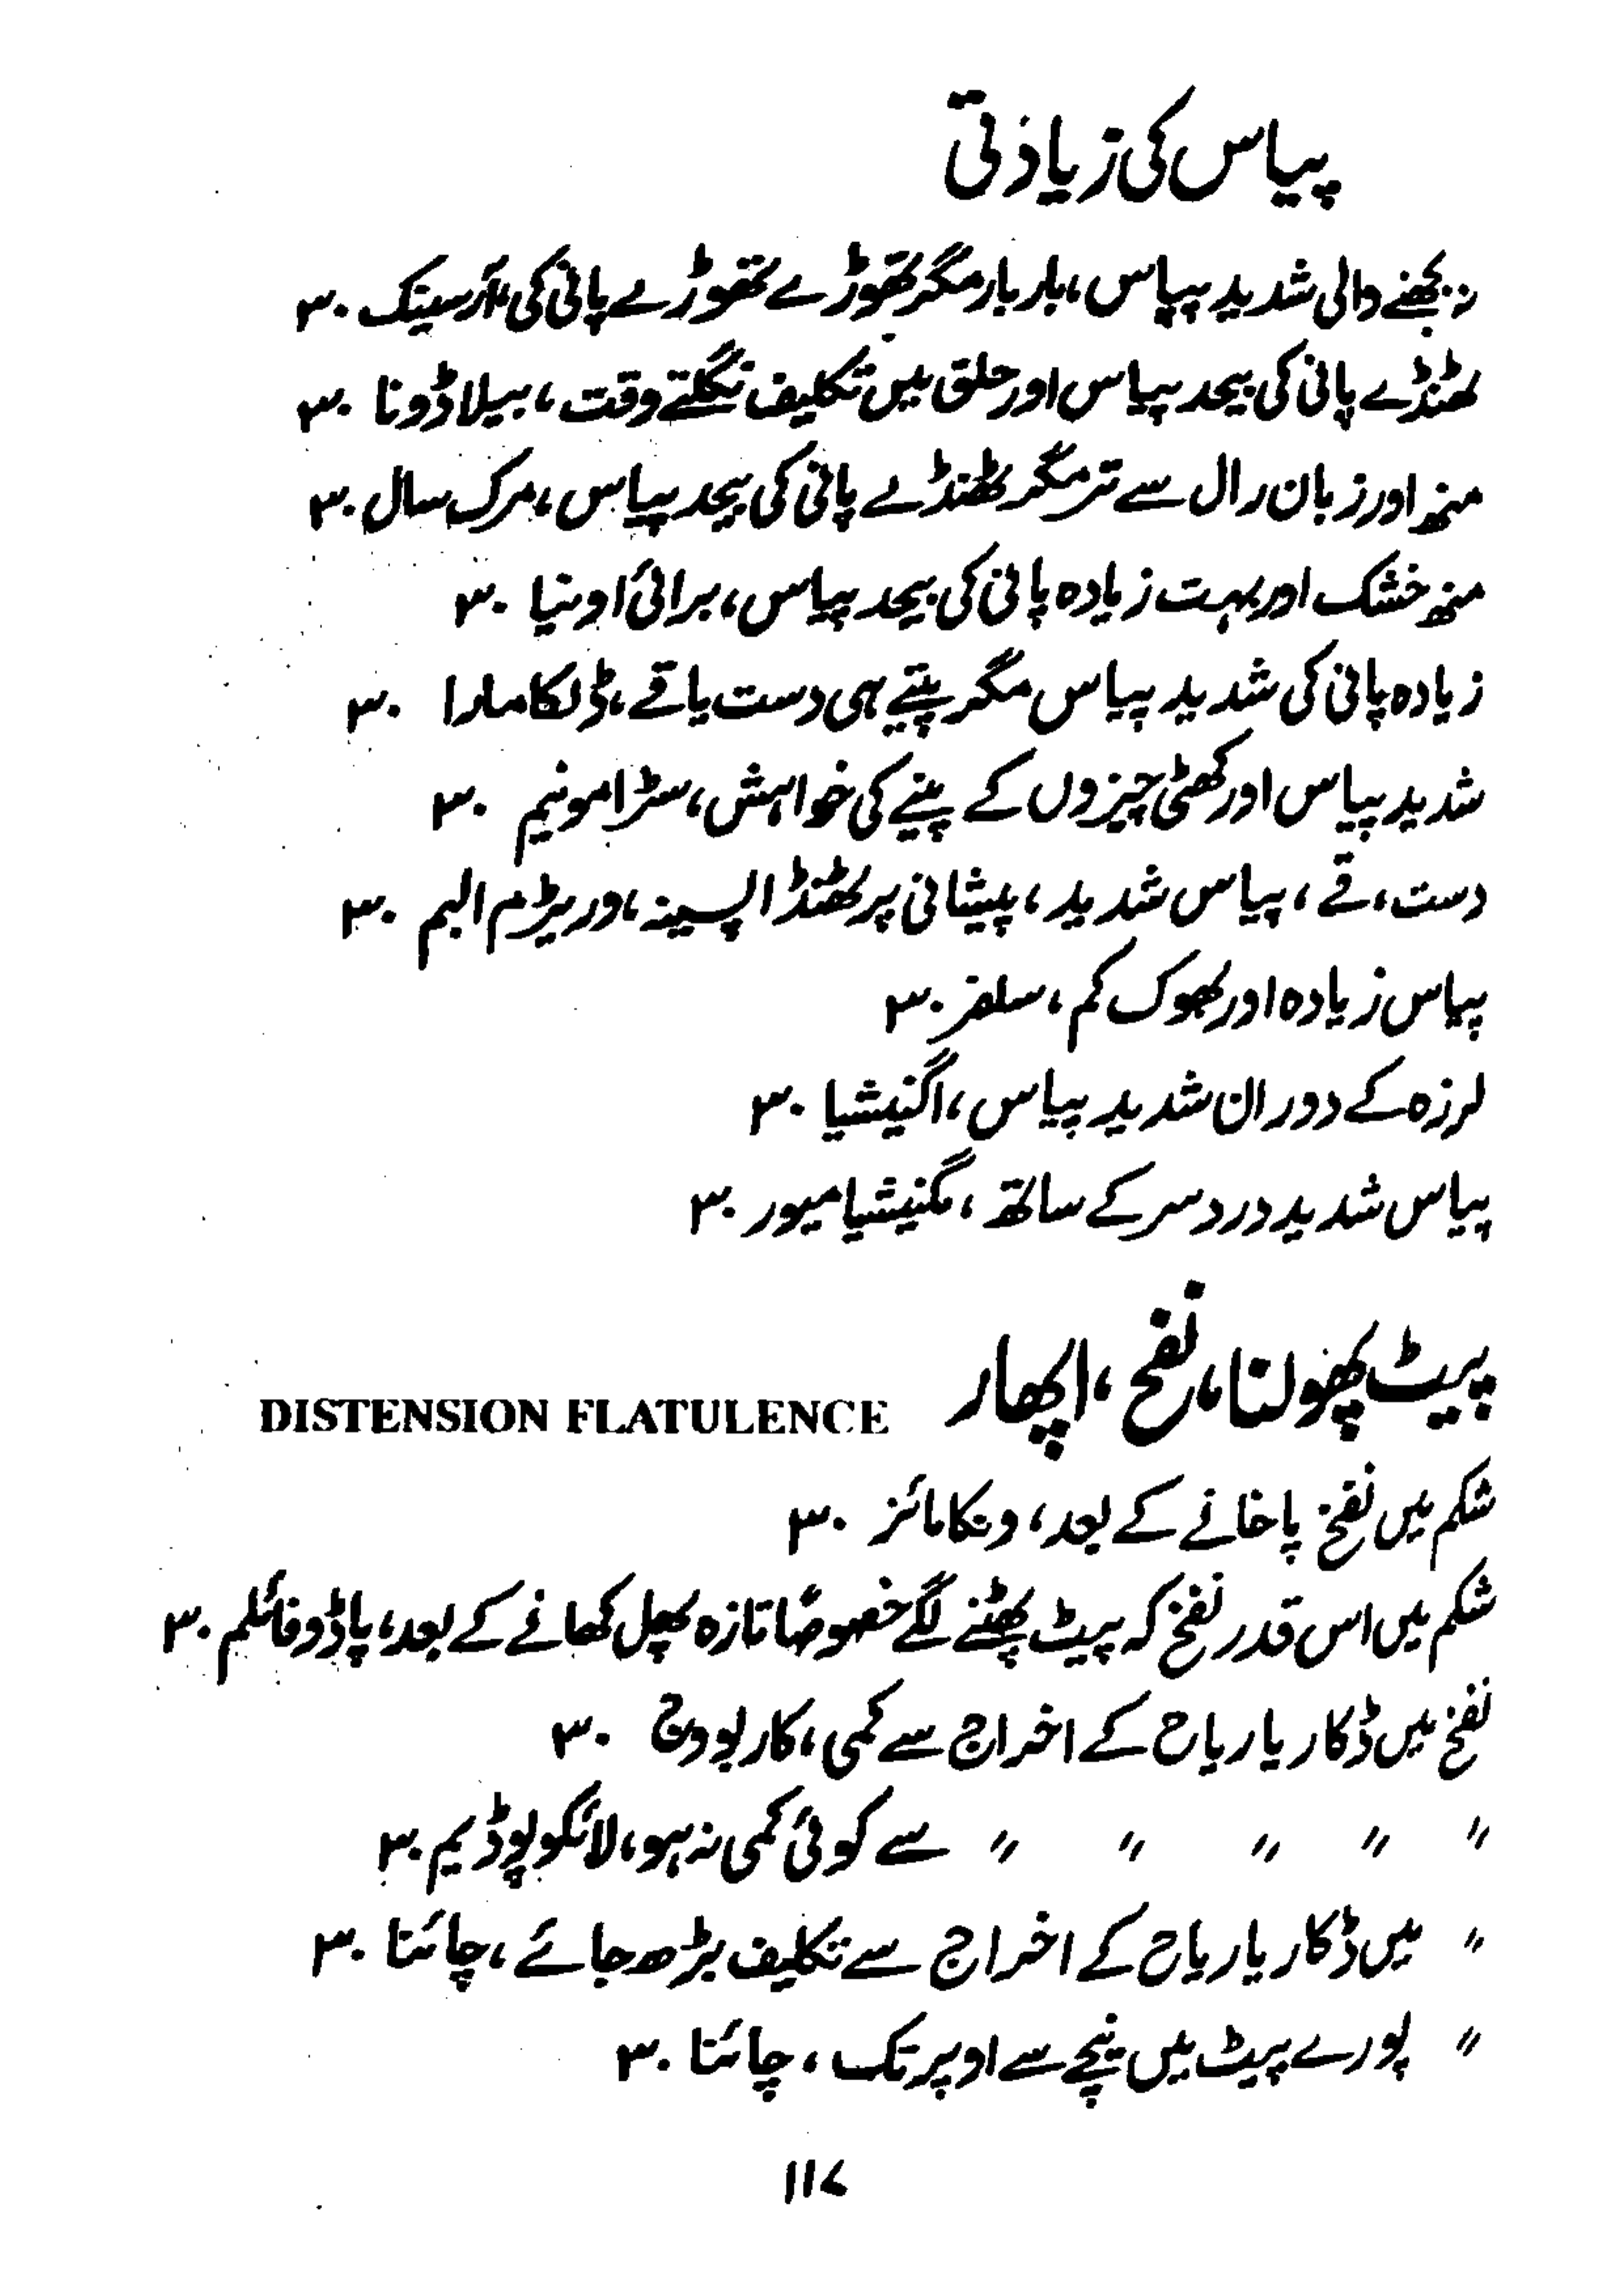 پیاس کی زیادتی
نہ بجھنے والی شدید پیاس، بار بار مگر تھوڑے تھوڑے پانی کی، آرسینک ۳۰
ٹھنڈے پانی کی بیحد پیاس اور حلق میں تکلیف نگلتے وقت، بیلاڈونا ۳۰
منہ اور زبان رال سے تر مگر ٹھنڈے پانی کی بیحد پیاس، مرک سال ۳۰
منھ خشک اور بہت زیادہ پانی کی بیحد پیاس، برائی اونیا ۳۰
زیادہ پانی کی شدید پیاس مگر پیتے ہی دست یا قے، ڈلکامارا ۳۰
شدید پیاس اور کھٹی چیزوں کے پینے کی خواہش، سٹرامونیم ۳۰
دست، قے، پیاس شدید، پیشانی پر ٹھنڈا پسینہ، وریٹرم البم ۳۰
پیاس زیادہ اور بھوک کم، سلفر ۳۰
لرزہ کے دوران شدید پیاس، اگنیشیا ۳۰
پیاس شدید درد سر کے ساتھ، مگنیشیا میور ۳۰
پیٹ پھولنا، نفخ، اپھار DISTENSION FLATULENCE
شکم میں نفخ پاخانے کے بعد، ونکا مائنر ۳۰
شکم میں اس قدر نفخ کہ پیٹ پھٹنے لگے خصوصاً تازہ پھل کھانے کے بعد، پاڈوفائلم ۳۰
نفخ میں ڈکار یا ریاح کے اخراج سے کمی، کاربووج ۳۰
〃 〃 〃 〃 〃 سے کوئی کمی نہ ہو، لائکوپوڈیم ۳۰
〃 میں ڈکار یا ریاح کے اخراج سے تکلیف بڑھ جائے، چائنا ۳۰
〃 پورے پیٹ میں نیچے سے اوپر تک، چائنا ۳۰
۱۱۷